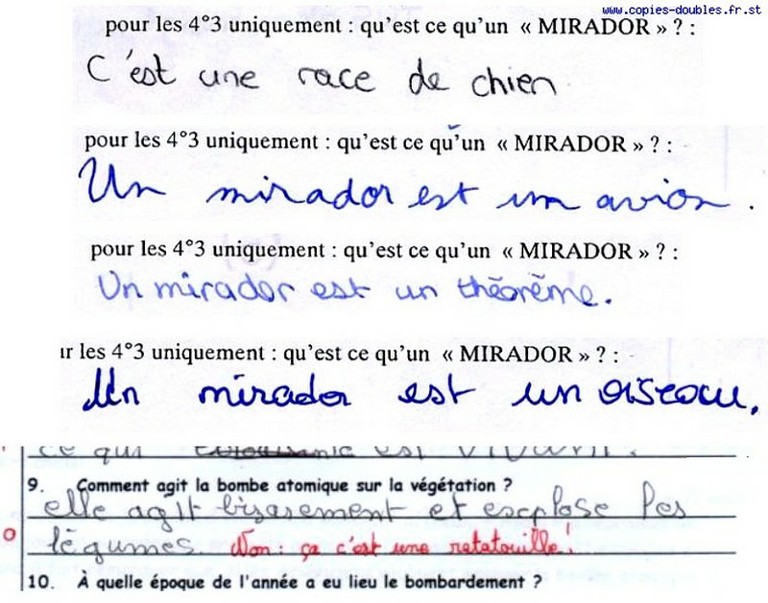 www.copies-doubles.fr.st
pour les 4°3 uniquement : qu'est ce qu'un « MIRADOR » ? :
C'est une race de chien
pour les 4°3 uniquement : qu'est ce qu'un « MIRADOR » ? :
Un mirador est un avion.
pour les 4°3 uniquement : qu'est ce qu'un « MIRADOR » ? :
Un mirador est un théorème.
ır les 4°3 uniquement : qu'est ce qu'un « MIRADOR » ? :
Un mirador est un oiseau.
ce qui est vivant.
9. Comment agit la bombe atomique sur la végétation ?
elle agit bizarement et esxplose les
légumes. Non : ça c'est une ratatouille !
10. À quelle époque de l'année a eu lieu le bombardement ?